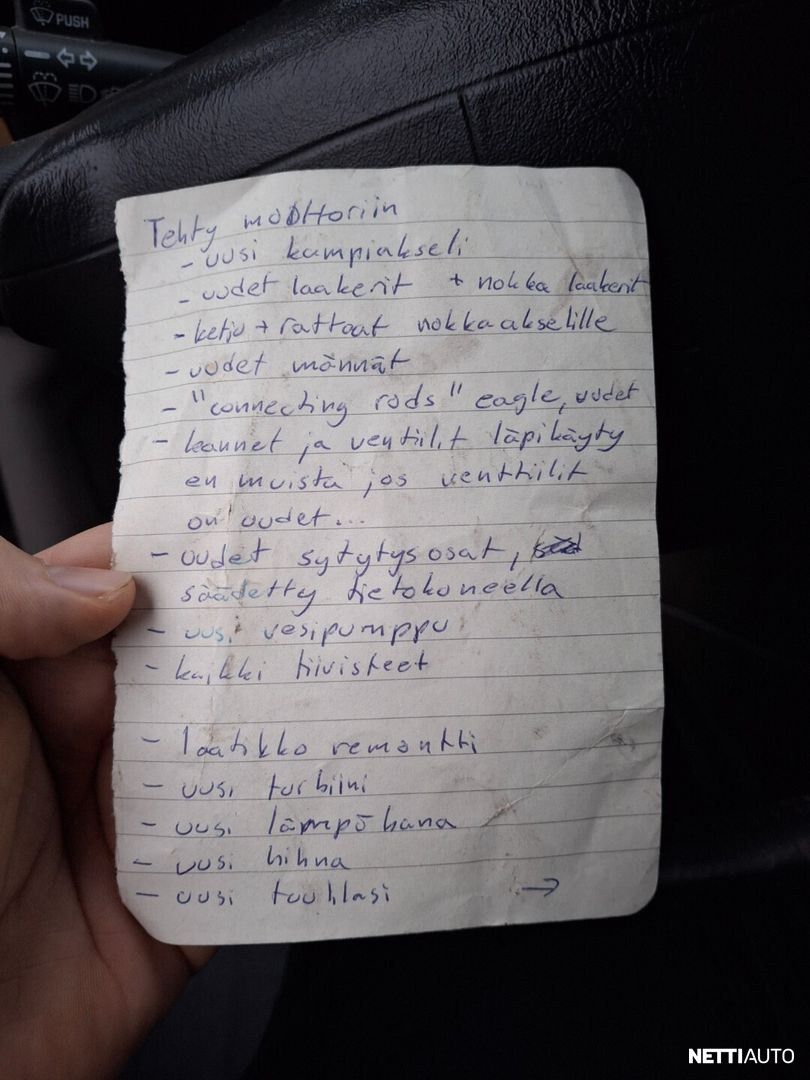 PUSH
Tehty moottoriin
- uusi kampiakseli
- uudet laakerit + nokka laakerit
- ketju + rattaat nokka akselille
- uudet männät
- "connecting rods" eagle, uudet
- kannet ja ventiilit läpikäyty
en muista jos venttiilit
on uudet...
- uudet sytytysosat,
säädetty tietokoneella
- uusi vesipumppu
- kaikki tiivisteet
- laatikko remontti
- uusi turbiini
- uusi lämpö hana
- uusi hihna
- uusi tuuhlasi →
NETTIAUTO